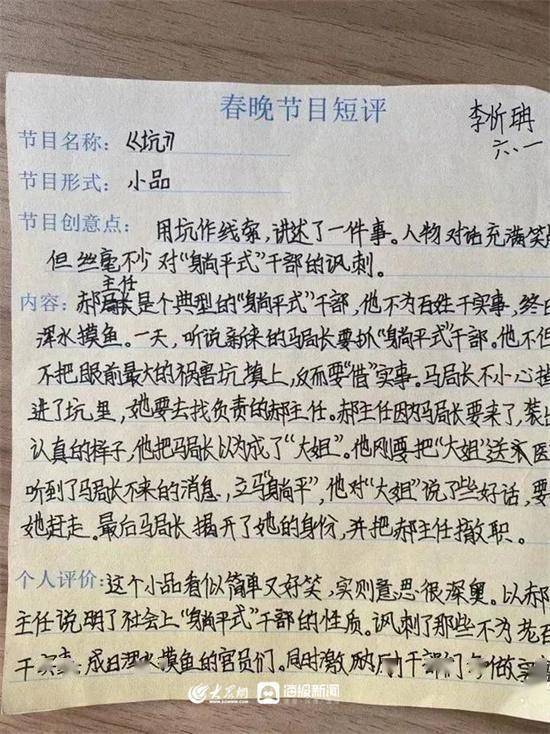 春晚节目短评
李忻珃
六、一
节目名称:《坑》
节目形式:小品
节目创意点: 用坑作线索,讲述了一件事。人物对话充满笑
但丝毫不少对“躺平式”干部的讽刺。
主任
内容:郝局长是个典型的“躺平式”干部,他不为百姓干实事,终
浑水摸鱼。一天,听说新来的马局长要抓“躺平式”干部。他不但
不把眼前最大的祸害坑填上,反而要“借”实事。马局长不小心掉
进了坑里,她要去找负责的郝主任。郝主任因为马局长要来了,装
认真的样子,他把马局长以为成了“大姐”。他刚要把“大姐”送永医
听到了马局长不来的消息,立马“躺平”,他对“大姐”说了些好话,要
她赶走。最后马局长揭开了她的身份,并把郝主任撤职。
个人评价:这个小品看似简单又好笑,实则意思很深奥。以郝
主任说明了社会上“躺平式”干部的性质。讽刺了那些不为老百
干实事,成日浑水摸鱼的官员们。同时激励 干部们 做实
大众网 海报新闻